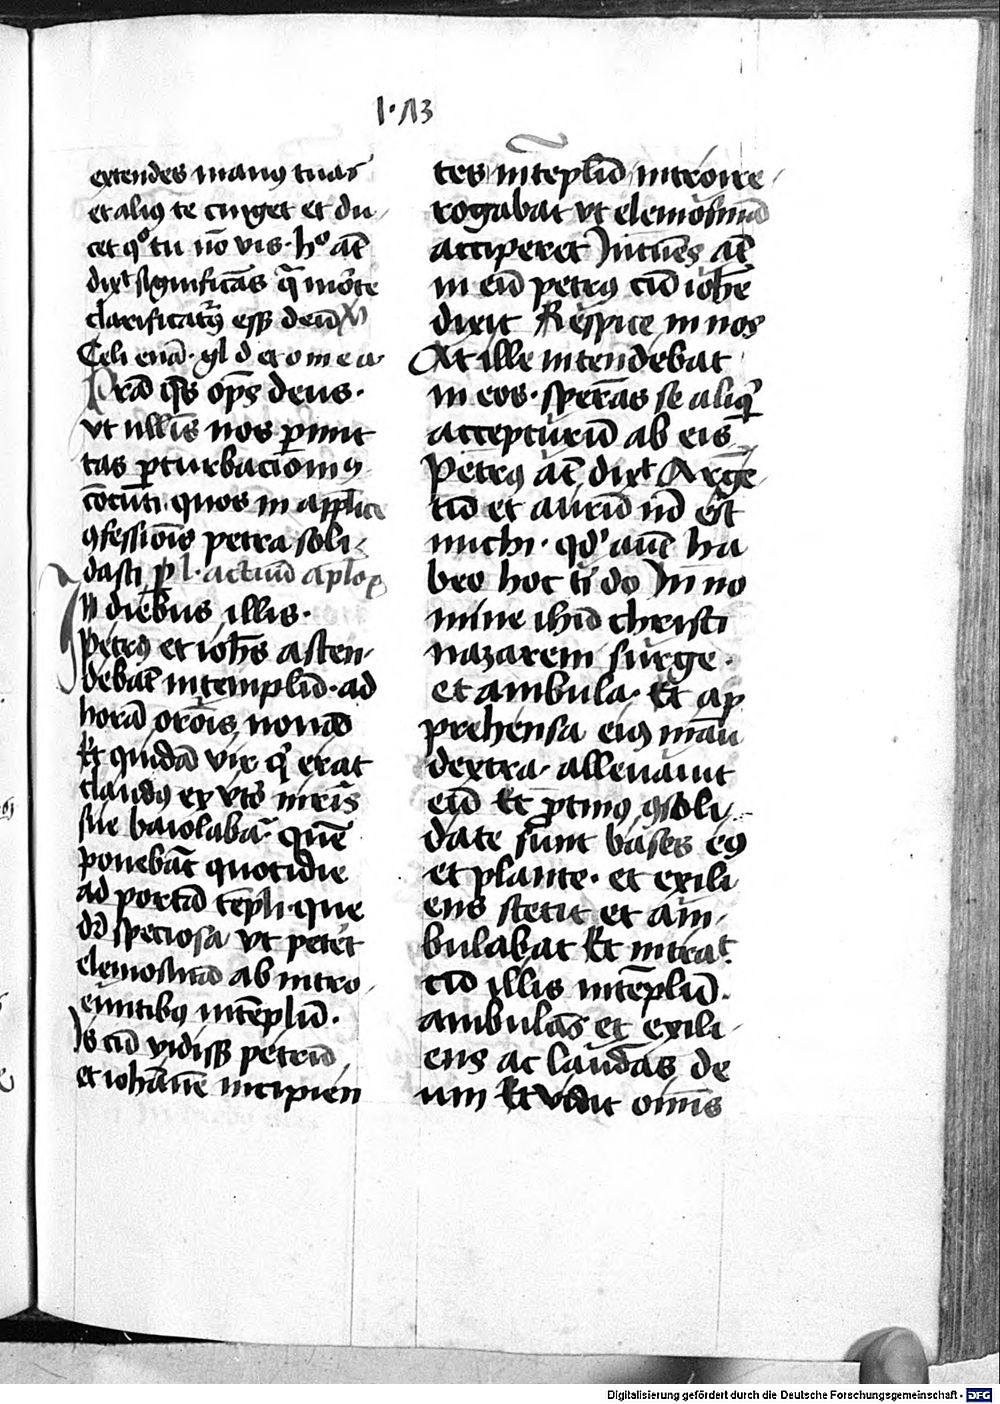 extendes manus tuas
et alius te cinget et du
cet q° tu nō vis · h° aūt
dix͛ significās q̄ morte
clarificatur͛ esse deū
Celi enā · gl d et o m e a
Prā q̄s op̄s deus ·
vt nllīs nos p̄mit
tas p̱turbacionibꝰ
cōcuti · quos in ap̄lice
ꝯfessiōis petra soli
dasti p̱ l · actuū aplоꝝ
In diebus illis ·
Petrꝰ et ioh̄s ascen
debāt in templū · ad
horā orōis nonā
Et quidā vir q͛ erat
claudꝰ ex vt͛o mr̄is
sue baiolabat͛ quē
ponebāt quotidie
ad portā tēpli · que
dr̄ speciosa vt pet͛et
elemosinā ab intro
euntibꝰ in tēplū ·
Is cū vidiss͛ petrū
et iohāne incipien
tes in tēplū introire
rogabat vt elemosinā
acciperet Intuēs aūt
in eū petrꝰ cū ioh̄e
dixit Respice in nos
At ille intendebat
in eos · sperās se aliq͛
accepturū ab eis
Petrꝰ aūt dix͛ Arge
tū et aurū nō est
michi · qd͛ autē ha
beo hoc t͛ do In no
mine ih̄u christi
nazareni surge ·
et ambula · Et ap
prehensa eiꝰ manu
dextra · allevavit
eū Et p̄tinꝰ ꝯsoli
date sunt bases eiꝰ
et plante · et exili
ens stetit et am
bulabat Et intrat͛
cū illis in tēplū ·
ambulās et exili
ens ac laudās de
um Et vidit omīs